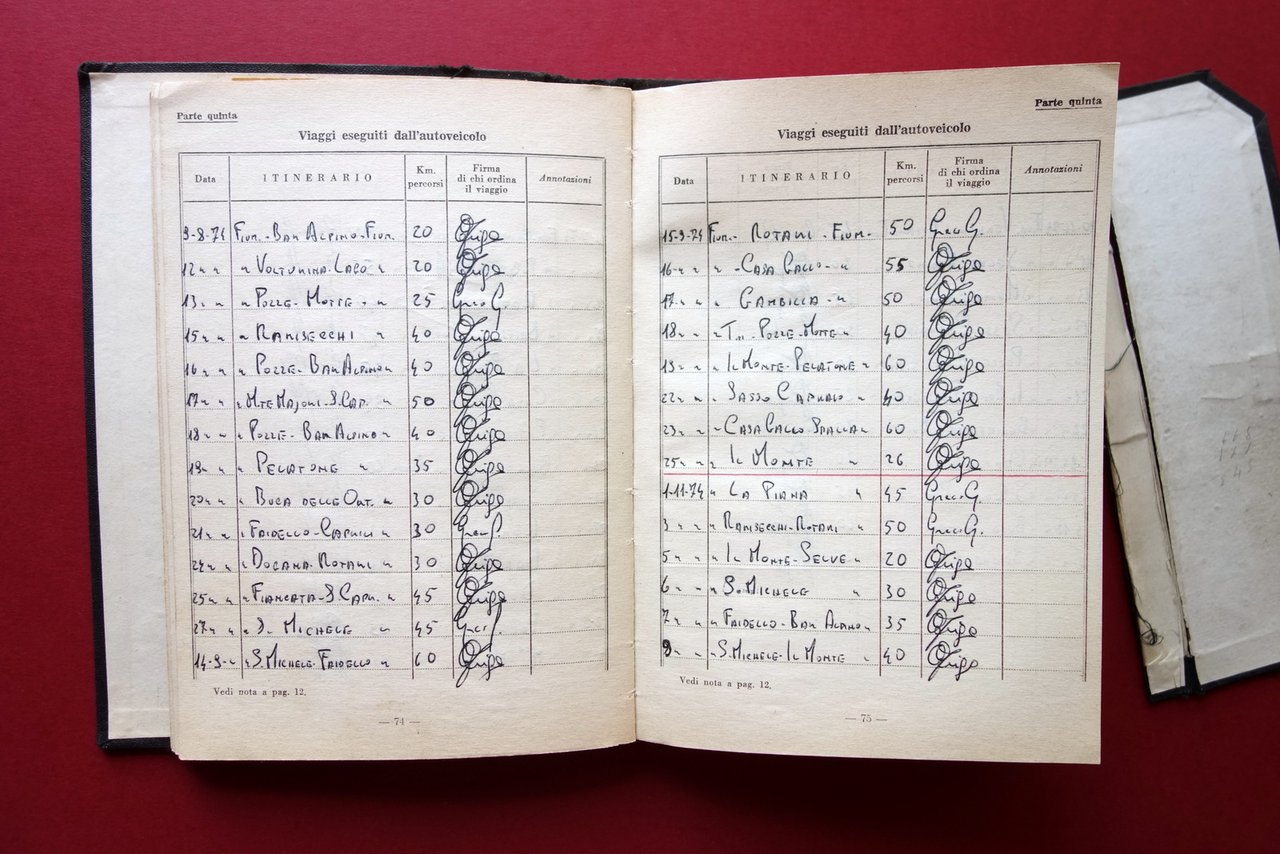 Parte quinta
Viaggi eseguiti dall'autoveicolo
Data ITINERARIO Km. percorsi Firma di chi ordina il viaggio Annotazioni
9-8-74 Fium.-Bar Alpino-Fium. 20
12 " " " Volturina-Lago " 20
13 " " " Pozze-Motte " 25 Greco G.
15 " " " Ramisecchi " 40
16 " " " Pozze-Bar Alpino " 40
17 " " " Mte Majori-S.Cap. " 50
18 " " " Pozze-Bar Alpino " 40
19 " " " Pelatone " 35
20 " " " Buca delle Ort. " 30
21 " " " Faidello- " 30
24 " " " Dogana-Rotari " 30
25 " " " Fiancata-S. Capr. " 45
27 " " " S. Michele " 45
14-9- " " S.Michele-Faidello " 60
Vedi nota a pag. 12.
— 74 —
Parte quinta
Viaggi eseguiti dall'autoveicolo
Data ITINERARIO Km. percorsi Firma di chi ordina il viaggio Annotazioni
15-9-74 Fium.- Rotari -Fium. 50 Greco G.
16 " " " -Casa Gallo- " 55
17 " " " Gambilla " 50
18 " " " T.n Pozze-Motte " 40
19 " " " Il Monte-Pelatone " 60
22 " " " Sasso " 40
23 " " " Casa Gallo Spalla " 60
25 " " " Il Monte " 26
1-11-74 " La Piana " 45 Greco G.
3 " " " Ramisecchi-Rotari " 50 Greco G.
5 " " " Il Monte-Selve " 20
6 " " " S. Michele " 30
7 " " " Faidello-Bar Alpino " 35
9 " " " S.Michele-Il Monte " 40
Vedi nota a pag. 12.
— 75 —